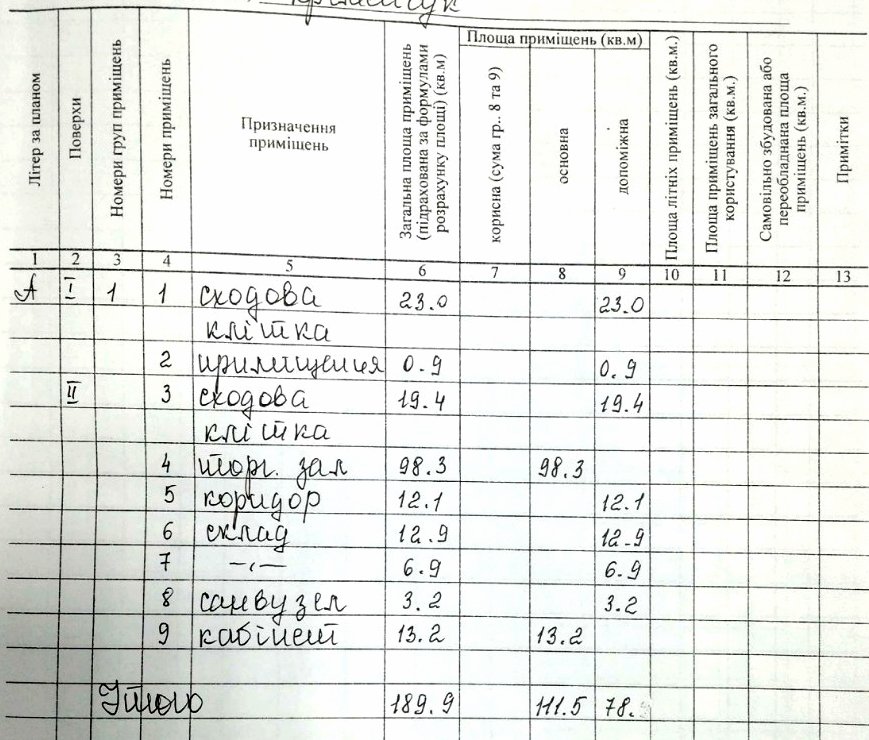 Літер за планом
Поверхи
Номери груп приміщень
Номери приміщень
Призначення
приміщень
Загальна площа приміщень
(підрахована за формулами
розрахунку площі) (кв.м)
Площа приміщень (кв.м)
корисна (сума гр.. 8 та 9)
основна
допоміжна
Площа літніх приміщень (кв.м.)
Площа приміщень загального
користування (кв.м.)
Самовільно збудована або
переобладнана площа
приміщень (кв.м.)
Примітки
1 2 3 4 5 6 7 8 9 10 11 12 13
А І 1 1 сходова 23.0 23.0
клітка
2 приміщення 0.9 0.9
ІІ 3 сходова 19.4 19.4
клітка
4 торг. зал 98.3 98.3
5 коридор 12.1 12.1
6 склад 12.9 12.9
7 —〃— 6.9 6.9
8 санвузел 3.2 3.2
9 кабінет 13.2 13.2
Итого 189.9 111.5 78.